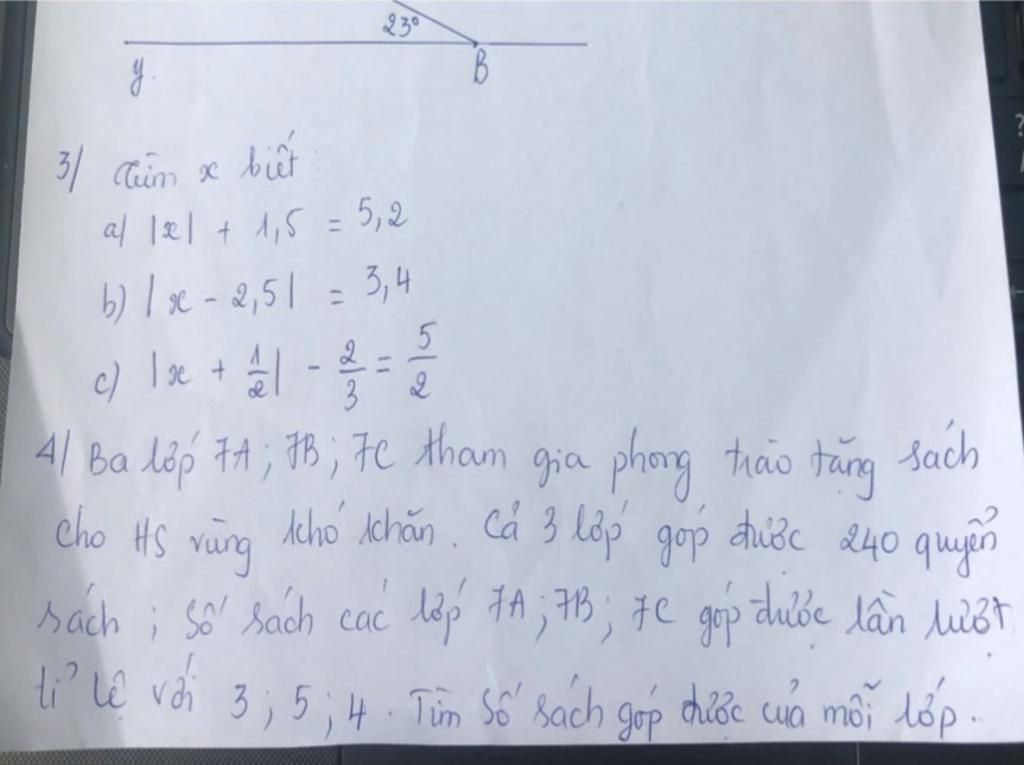 23°
y
B
3/ Tìm x biết
a) |x| + 1,5 = 5,2
b) |x - 2,5| = 3,4
c) |x + 1/2| - 2/3 = 5/2
4/ Ba lớp 7A; 7B; 7C tham gia phong trào tặng sách
cho HS vùng khó khăn. Cả 3 lớp góp được 240 quyển
sách; Số sách các lớp 7A; 7B; 7C góp được lần lượt
tỉ lệ với 3; 5; 4. Tìm số sách góp được của mỗi lớp.